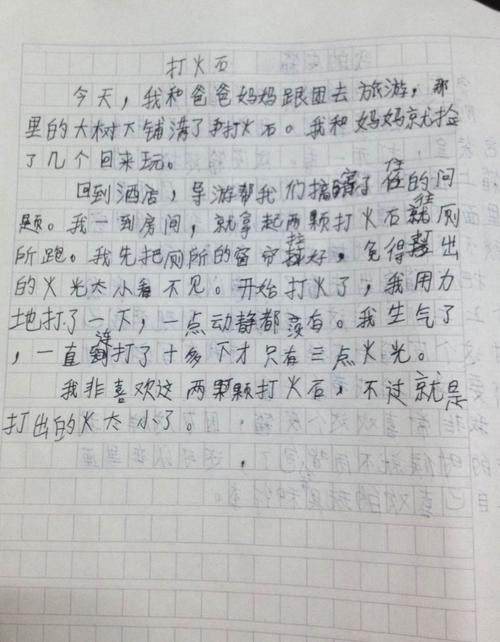 打火石
今天，我和爸爸妈妈跟团去旅游，那
里的大树下铺满了打火石。我和妈妈就捡
了几个回来玩。
回到酒店，导游帮我们搞定了住的问
题。我一到房间，就拿起两颗打火石往厕
所跑。我先把厕所的窗帘挂好，免得打出
的火光太小看不见。开始打火了，我用力
地打了一下，一点动静都没有。我生气了
，一直打了十多下才只有三点火光。
我非喜欢这两颗打火石，不过就是
打出的火太小了。